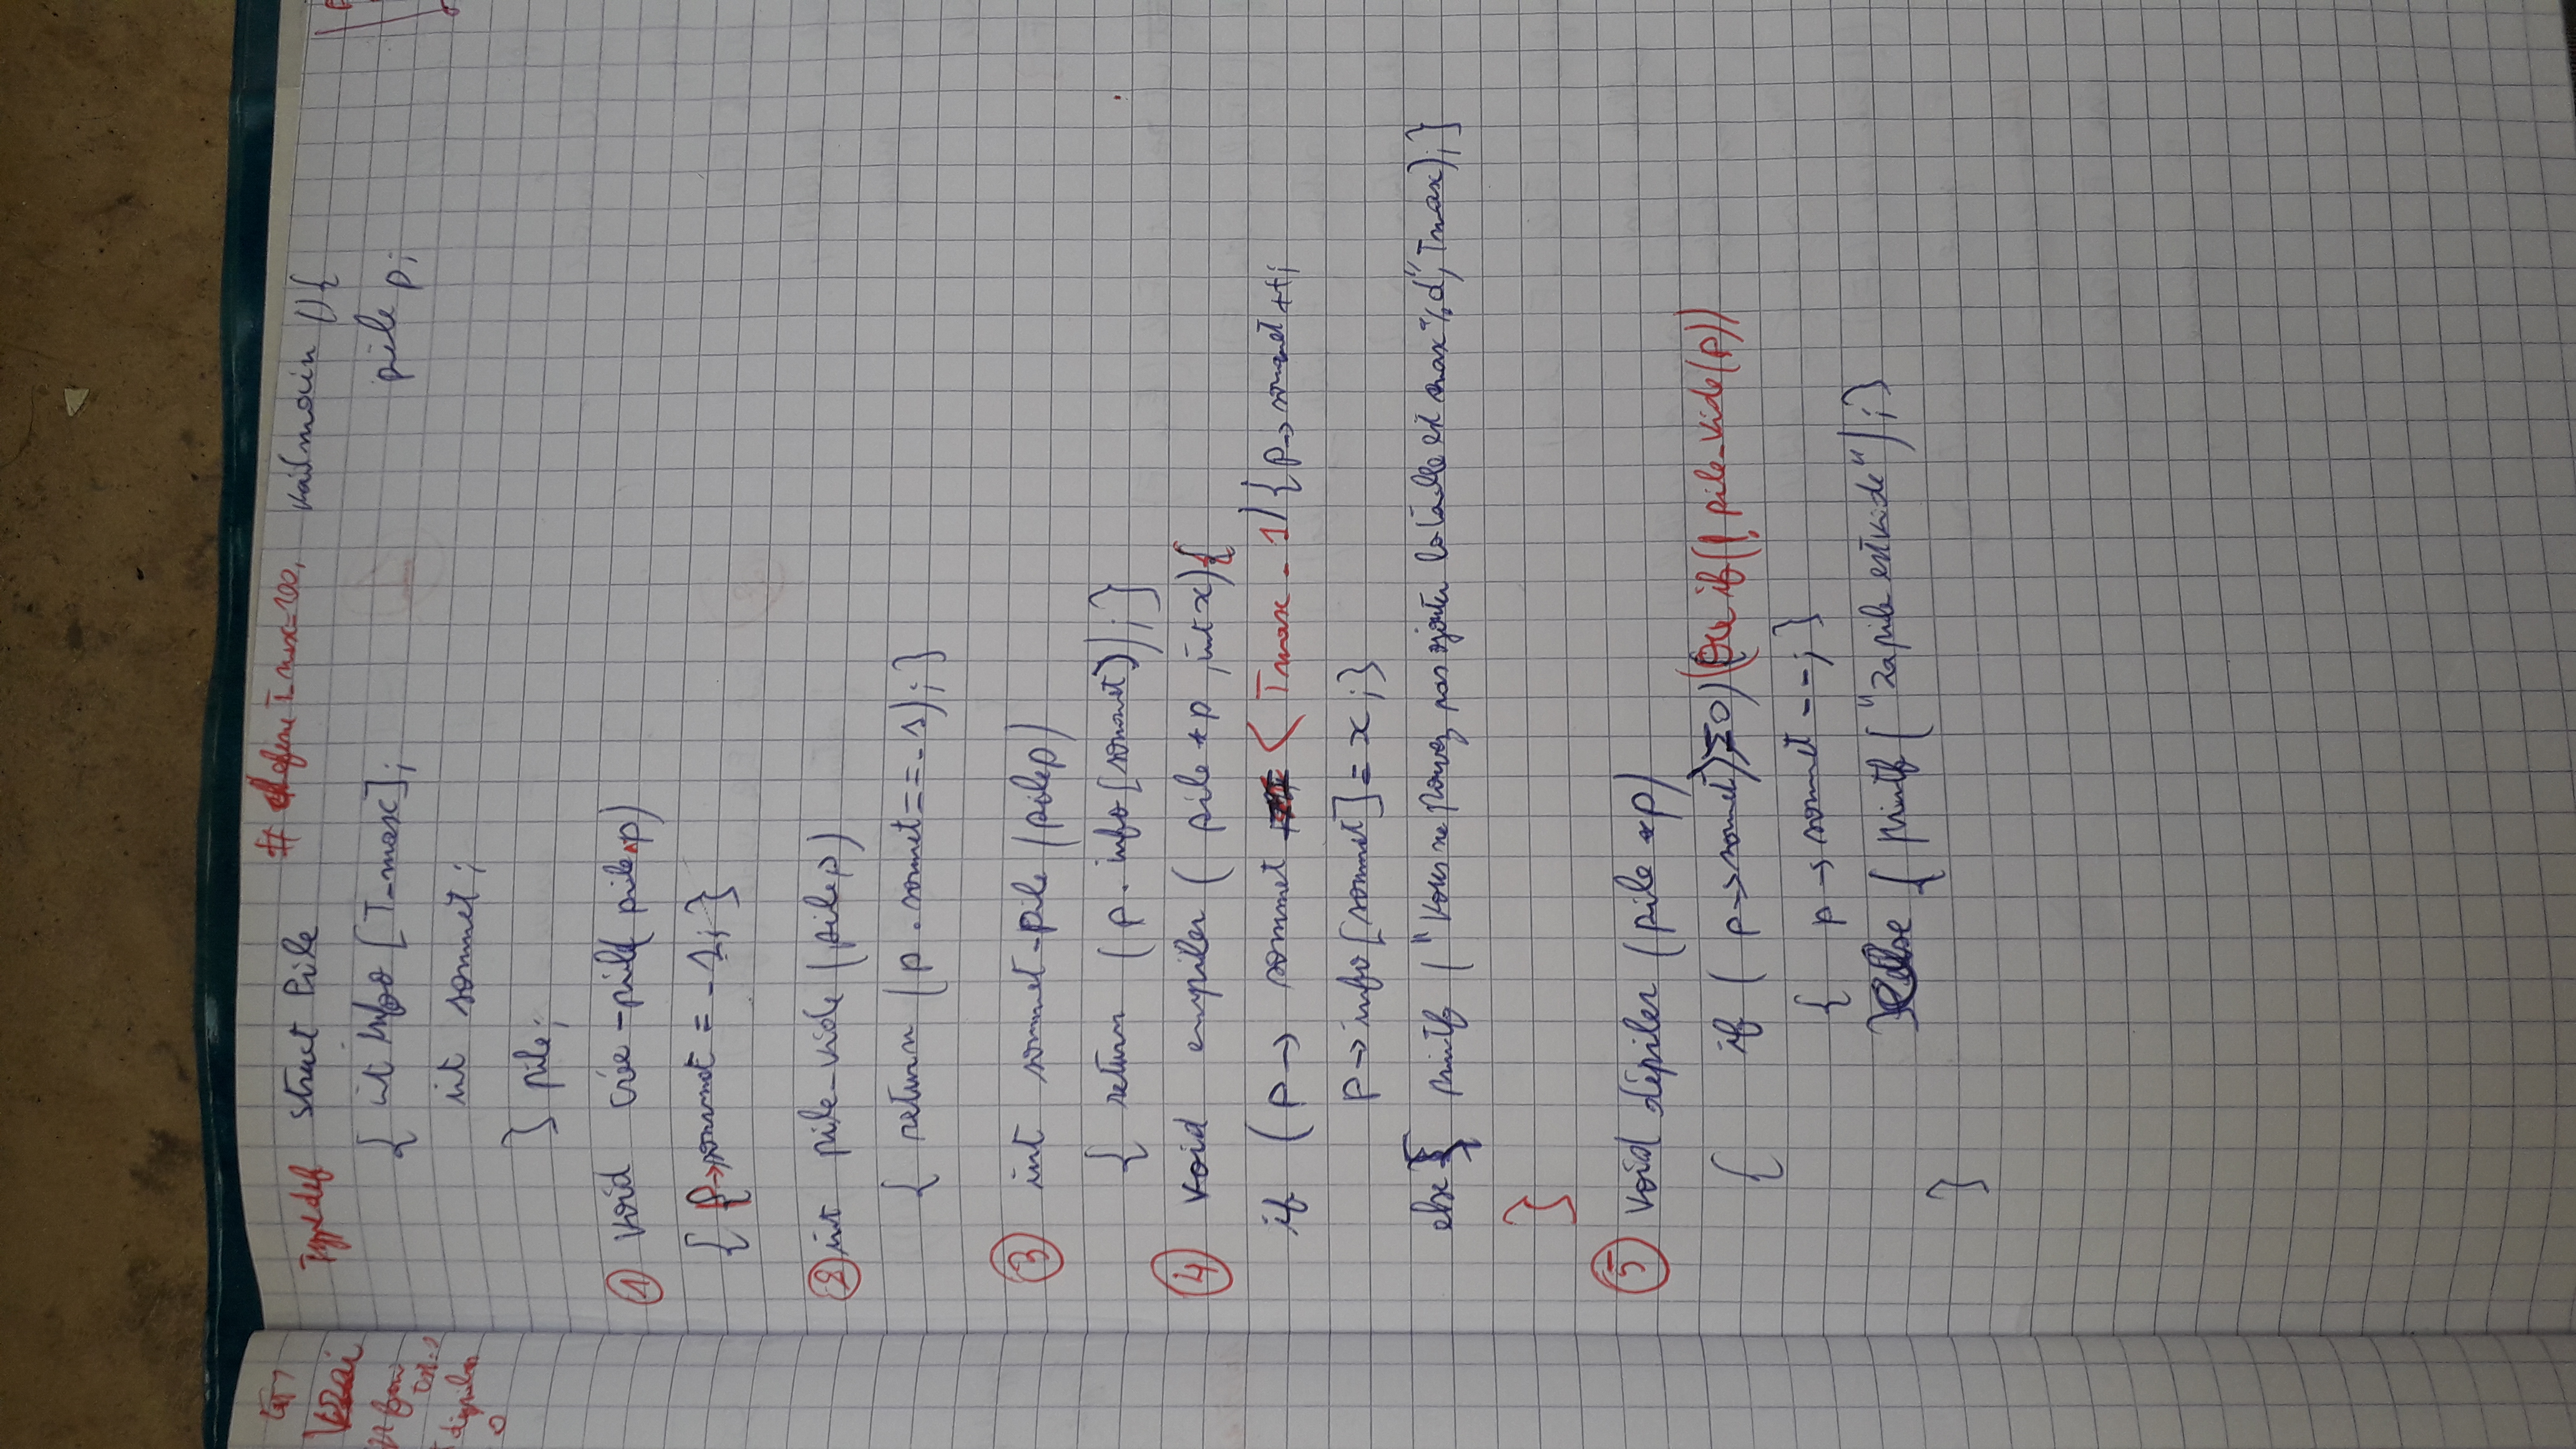 Typedef struct Pile # define T_max=100, void main (){
{ int info [T_max]; pile p;
int sommet;
} pile;
① void crée-pile( pile *p)
{ p->sommet = -1; }
② int pile_vide (pile p)
{ return (p.sommet==-1); }
③ int sommet-pile (pile p)
{ return (p.info[sommet]); }
④ void empiler ( pile *p , int x){
if (p-> sommet < Tmax - 1) { p->sommet ++;
p->info [sommet] = x ; }
else { printf ("Vous ne pouvez pas ajouter la taille est max %d", Tmax); }
}
⑤ void dépiler (pile *p)
{ if ( p->sommet >= 0) (Ou if (! pile_vide (p))
{ p->sommet --; }
} else { printf ("La pile est vide"); }
}
Vrai